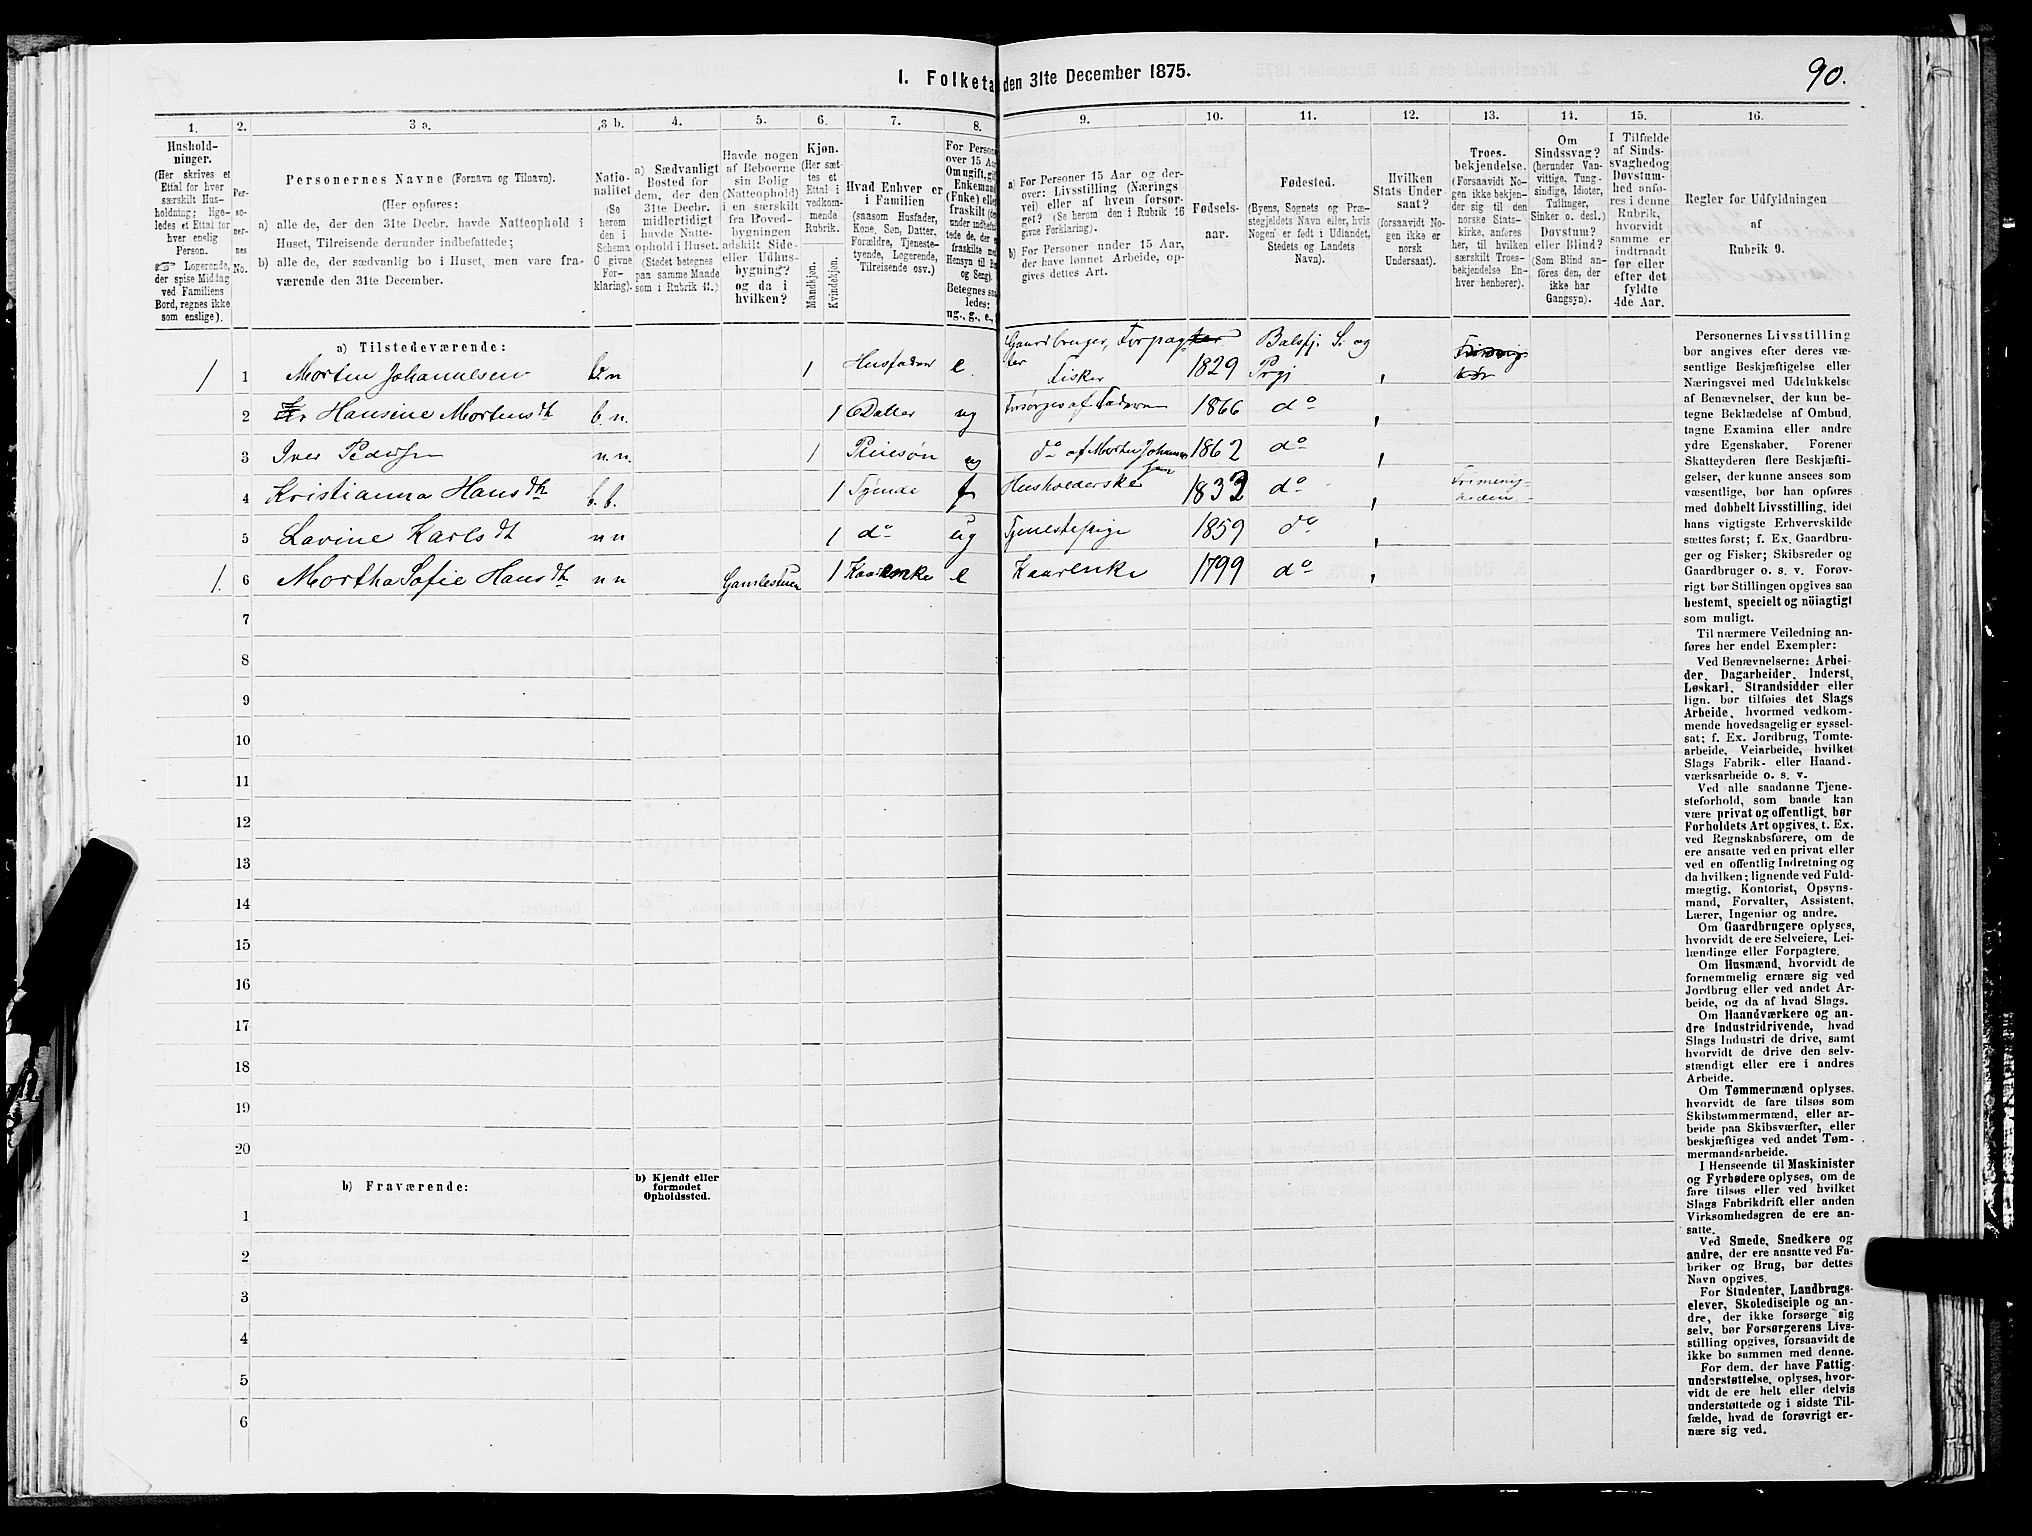 1. Folketa den 31te December 1875.
90.
1. 2. 3 a. 3 b. 4. 5. 6. 7. 8. 9. 10. 11. 12. 13. 14. 15. 16.
Hushold-
ninger.
(Her skrives et
Ettal for hver
særskilt Hus-
holdning; lige-
ledes et Ettal for
hver enslig
Person.
☞ Logerende,
der spise Middag
ved Familiens
Bord, regnes ikke
som enslige).
Per-
so-
ner-
nes
No.
Personernes Navne (Fornavn og Tilnavn).
(Her opføres:
a) alle de, der den 31te Decbr. havde Natteophold i
Huset, Tilreisende derunder indbefattede;
b) alle de, der sædvanlig bo i Huset, men vare fra-
værende den 31te December.
Natio-
nalitet
(Se
herom
den i
Schema
C givne
For-
klaring).
a) Sædvanligt
Bosted for
dem, der den
31te Decbr.
midlertidigt
havde Natte-
ophold i Huset.
(Stedet betegnes
paa samme Maade
som i Rubrik 11.)
Havde nogen
af Beboerne
sin Bolig
(Natteophold)
i en særskilt
fra Hoved-
bygningen
adskilt Side-
eller Udhus-
bygning?
og da i
hvilken?
Kjøn.
(Her sæt-
tes et
Ettal i
vedkom-
mende
Rubrik.
Mandkjøn.
Kvindekjøn.
Hvad Enhver er
i Familien
(saasom Husfader,
Kone, Søn, Datter,
Forældre, Tjeneste-
tyende, Logerende,
Tilreisende osv.)
For Persone
over 15 Aar
Om ugift, gif
Enkemand
(Enke) elle
fraskilt (de
under indbefat-
tede de, der e
fraskilte med
Hensyn til B
og Seng).
Betegnes saa
ledes:
ug., g., e.,
a) For Personer 15 Aar og der-
over: Livsstilling (Nærings-
vei) eller af hvem forsør-
get? (Se herom den i Rubrik 16
givne Forklaring).
b) For Personer under 15 Aar,
der have lønnet Arbeide, op-
gives dettes Art.
Fødsels-
aar.
Fødested.
(Byens, Sognets og Præ-
stegjeldets Navn eller, hvis
Nogen er født i Udlandet,
Stedets og Landets
Navn).
Hvilken
Stats Under-
saat?
(forsaavidt No-
gen ikke er
norsk
Undersaat).
Troes-
bekjendelse.
(Forsaavidt No-
gen ikke bekjen-
der sig til den
norske Stats-
kirke, anføres
her, til hvilken
særskilt Troes-
bekjendelse En-
hver henhører).
Om
Sindssvag?
(herunder Van-
vittige, Tung-
sindige, Idioter,
Tullinger,
Sinker o. desl.)
Døvstum?
eller Blind?
(Som Blind an-
føres den, der
ikke har
Gangsyn).
I Tilfælde
af Sinds-
svaghedog
Døvstum-
hed anfø-
res i denne
Rubrik,
hvorvidt
samme er
indtraadt
før eller
efter det
fyldte
4de Aar.
Regler for Udfyldningen
af
Rubrik 9.
a) Tilstedeværende:
1 1 Morten Johannesen b.n 1 Husfader e. Gaardbruger, Forpagter Fisker 1829 Balsfj. S. og Prgj
2 Hansine Mortensdt b. n. 1 Datter ug Forsørges af Faderen 1866 do
3 Iver Pedersen n.n. 1 Pleiesøn ug do af Morten Johannesen 1862 do
4 Kristianna Hansdt b. b. 1 Tyende f Husholderske 1833 do Frimenigheden
5 Lavine Karlsdt n n 1 do ug Tjenestepige 1859 do
1. 6 Mortha Sofie Hansdt n n Gamlestuen 1 Kaarenke e Kaarenke 1799 do
7
8
9
10
11
12
13
14
15
16
17
18
19
20
b) Fraværende:
b) Kjendt eller
formodet
Opholdssted.
1
2
3
4
5
6
Personernes Livsstilling
bør angives efter deres væ-
sentlige Beskjæftigelse eller
Næringsvei med Udelukkelse
af Benævnelser, der kun be-
tegne Beklædelse af Ombud,
tagne Examina eller andre
ydre Egenskaber. Forener
Skatteyderen flere Beskjæfti-
gelser, der kunne ansees som
væsentlige, bør han opføres
med dobbelt Livsstilling, idet
hans vigtigste Erhvervskilde
sættes først; f. Ex. Gaardbru-
ger og Fisker; Skibsreder og
Gaardbruger o. s. v. Forøv-
rigt bør Stillingen opgives saa
bestemt, specielt og nöiagtigt
som muligt.
Til nærmere Veiledning an-
føres her endel Exempler:
Ved Benævnelserne: Arbei-
der, Dagarbeider, Inderst,
Løskarl, Strandsidder eller
lign. bør tilføies det Slags
Arbeide, hvormed vedkom-
mende hovedsagelig er syssel-
sat; f. Ex. Jordbrug, Tomte-
arbeide, Veiarbeide, hvilket
Slags Fabrik- eller Haand-
værksarbeide o. s. v.
Ved alle saadanne Tjene-
steforhold, som baade kan
være privat og offentligt, bør
Forholdets Art opgives, t. Ex.
ved Regnskabsførere, om de
ere ansatte ved en privat eller
ved en offentlig Indretning og
da hvilken; lignende ved Fuld-
mægtig, Kontorist, Opsyns-
mand, Forvalter, Assistent,
Lærer, Ingeniør og andre.
Om Gaardbrugere oplyses,
hvorvidt de ere Selveiere, Lei-
lændinge eller Forpagtere.
Om Husmænd, hvorvidt de
fornemmelig ernære sig ved
Jordbrug eller ved andet Ar-
beide, og da af hvad Slags.
Om Haandværkere og an-
dre Industridrivende, hvad
Slags Industri de drive, samt
hvorvidt de drive den selv-
stændigt eller ere i andres
Arbeide.
Om Tømmermænd oplyses,
hvorvidt de fare tilsøs som
Skibstømmermænd, eller ar-
beide paa Skibsværfter, eller
beskjæftiges ved andet Tøm-
mermandsarbeide.
I Henseende til Maskinister
og Fyrbødere oplyses, om de
fare tilsøs eller ved hvilket
Slags Fabrikdrift eller anden
Virksomhedsgren de ere an-
satte.
Ved Smede, Snedkere og
andre, der ere ansatte ved Fa-
briker og Brug, bør dettes
Navn opgives.
For Studenter, Landbrugs-
elever, Skoledisciple og an-
dre, der ikke forsørge sig
selv, bør Forsørgerens Livs-
stilling opgives, forsaavidt de
ikke bo sammen med denne.
For dem, der have Fattig-
understøttelse, oplyses, hvor-
vidt de ere helt eller delvis
understøttede og i sidste Til-
fælde, hvad de forøvrigt er-
nære sig ved.